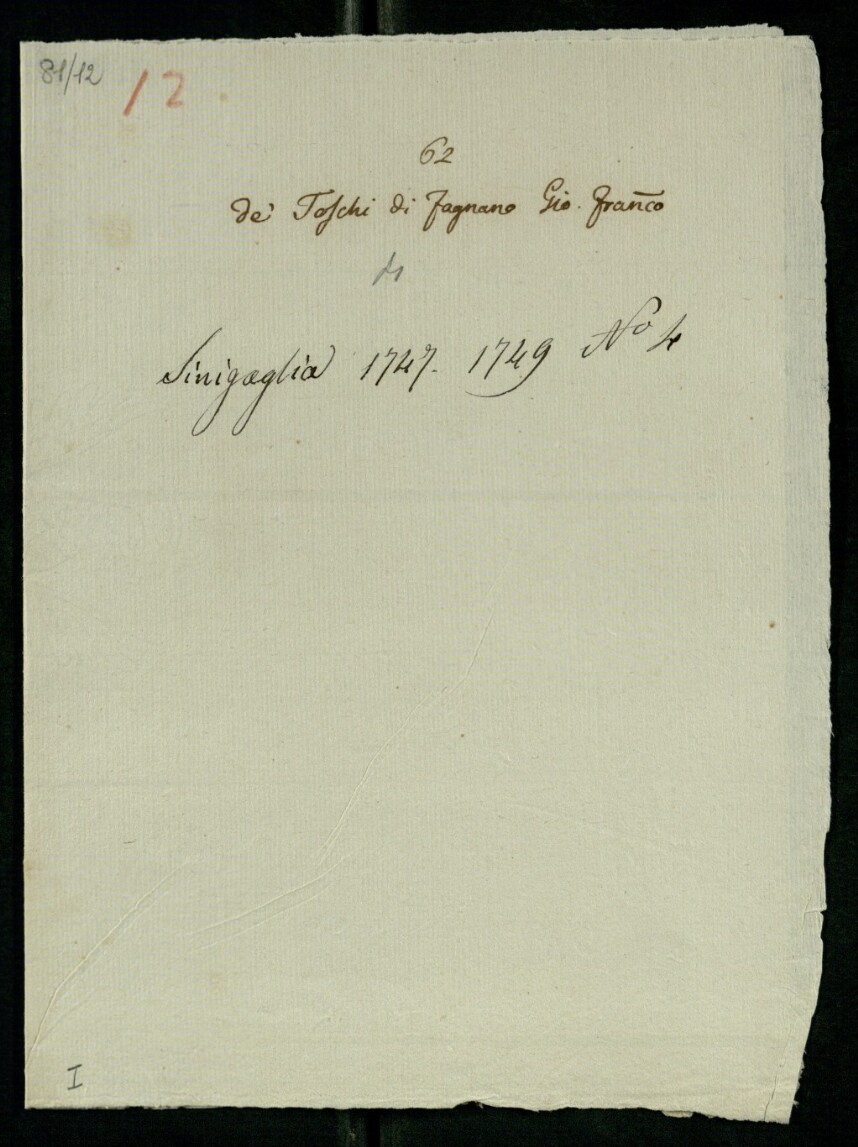 81/12
12
62
de' Toschi di Fagnano Gio. Franco
4
Sinigaglia 1747. 1749 No 4
I